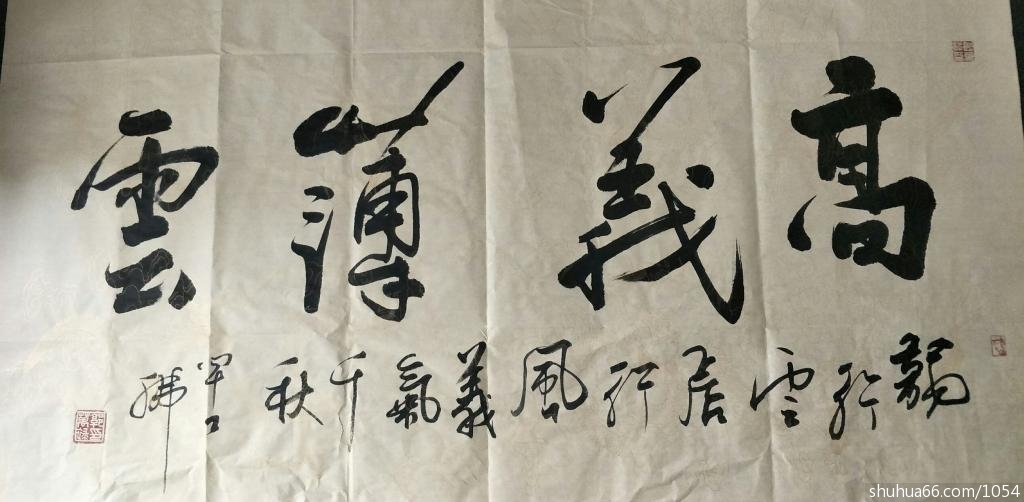 高義薄雲
雲居行風義氣千秋
shuhua66.com/1054